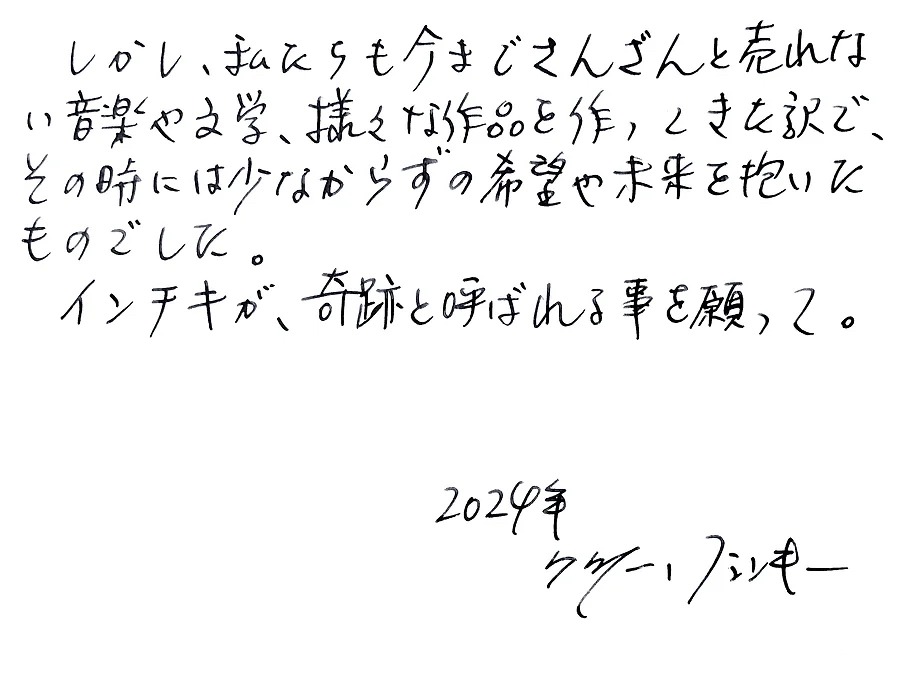 しかし、私たちも今までさんざんと売れな
い音楽や文学、様々な作品を作ってきた訳で、
その時には少なからずの希望や未来を抱いた
ものでした。
インチキが、奇跡と呼ばれる事を願って。
2024年